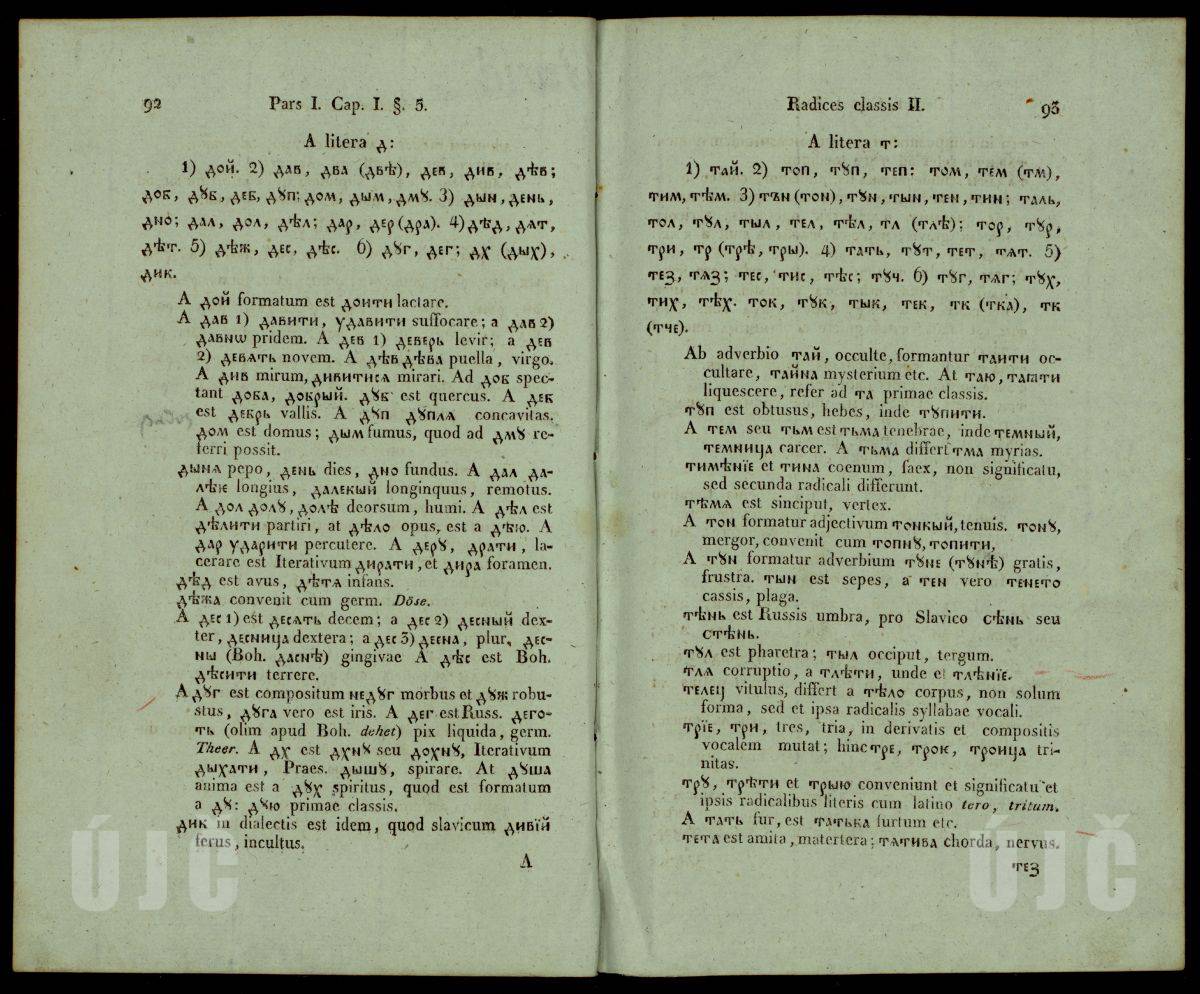 92 Pars I. Cap. I. §. 5.
A litera д:
1) дой. 2) дав, два (двѣ), дев, див, дѣв;
доб, дꙋб, деб, дꙋп; дом, дым, дмꙋ. 3) дын, день,
дно; дал, дол, дѣл; дар, дер (дра). 4) дѣд, дѧт,
дѣт. 5) дѣж, дес, дѣс. 6) дꙋг, дег; дх (дых),
дик.
A дой formatum est доити lactare.
A дав 1) давити, удавити suffocare; a дав 2)
давнѡ pridem. A дев 1) деверь levir; a дев
2) девѧть novem. A дѣв дѣва puella, virgo.
A див mirum, дивитисѧ mirari. Ad доб spec-
tant доба, добрый. дꙋб est quercus. A деб
est дебрь vallis. A дꙋп дꙋплѧ concavitas.
дом est domus; дым fumus, quod ad дмꙋ re-
ferri possit.
дынѧ pepo, день dies, дно fundus. A дал да-
лѣе longius, далекый longinquus, remotus.
A дол долꙋ, долѣ deorsum, humi. A дѣл est
дѣлити partiri, at дѣло opus, est a дѣю. A
дар ударити percutere. A дерꙋ, драти, la-
cerare est Iterativum дирати, et дира foramen.
дѣд est avus, дѣтѧ infans.
дѣжа convenit cum germ. Döse.
A дес 1) est десѧть decem; a дес 2) десный dex-
ter, десница dextera; a дес 3) десна, plur. дес-
ны (Boh. даснѣ) gingivae A дѣс est Boh.
дѣсити terrere.
A дꙋг est compositum недꙋг morbus et дꙋж robu-
stus, дꙋга vero est iris. A дег est Russ. дего-
ть (olim apud Boh. dehet) pix liquida, germ.
Theer. A дх est дхнꙋ seu дохнꙋ, Iterativum
дыхати, Praes. дышꙋ, spirare. At дꙋша
anima est a дꙋх spiritus, quod est formatum
a дꙋ: дꙋю primae classis.
дик in dialectis est idem, quod slavicum дивїй
ferus, incultus.
A
Radices classis II. 93
A litera т:
1) тай. 2) топ, тꙋп, теп: том, тем (тм),
тим, тѣм. 3) тън (тон), тꙋн, тын, тен, тин; таль,
тол, тꙋл, тыл, тел, тѣл, тл (тлѣ); тор, тꙋр,
три, тр (трѣ, тры). 4) тать, тꙋт, тет, тѧт. 5)
тез, тѧз; тес, тис, тѣс; тꙋч. 6) тꙋг, тѧг; тꙋх,
тих, тѣх. ток, тꙋк, тык, тек, тк (тка), тк
(тче).
Ab adverbio тай, occulte, formantur таити oc-
cultare, тайна mysterium etc. At таю, таꙗти
liquescere, refer ad та primae classis.
тꙋп est obtusus, hebes, inde тꙋпити.
A тем seu тьм est тьма tenebrae, inde темный,
темница carcer. A тьма differt тма myrias.
тимѣнїе et тина coenum, faex, non significatu,
sed secunda radicali differunt.
тѣмѧ est sinciput, vertex.
A тон formatur adjectivum тонкый, tenuis. тонꙋ,
mergor, convenit cum топнꙋ, топити,
A тꙋн formatur adverbium тꙋне (тꙋнѣ) gratis,
frustra. тын est sepes, a тен vero тенето
cassis, plaga.
тѣнь est Russis umbra, pro Slavico сѣнь seu
стѣнь.
тꙋл est pharetra; тыл occiput, tergum.
тлѧ corruptio, a тлѣти, unde et тлѣнїе.
телец vitulus, differt a тѣло corpus, non solum
forma, sed et ipsa radicalis syllabae vocali.
трїе, три, tres, tria, in derivatis et compositis
vocalem mutat; hinc тре, трок, троица tri-
nitas.
трꙋ, трѣти et трыю conveniunt et significatu et
ipsis radicalibus literis cum latino tero, tritum.
A тать fur, est татьба furtum etc.
тета est amita, matertera; тѧтива chorda, nervus.
тез
ÚJČ
ÚJČ